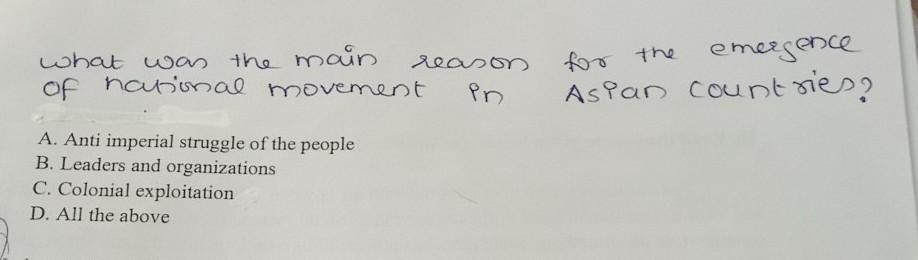 what was the main reason for the emergence
of national movement in Asian countries?
A. Anti imperial struggle of the people
B. Leaders and organizations
C. Colonial exploitation
D. All the above